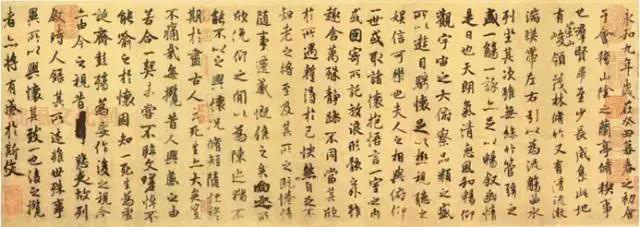 永和九年歲在癸丑暮春之初會
于會稽山陰之蘭亭脩稧事
也群賢畢至少長咸集此地
有崇山峻領茂林脩竹又有清流激
湍暎帶左右引以為流觴曲水
列坐其次雖無絲竹管弦之
盛一觴一詠亦足以暢叙幽情
是日也天朗氣清惠風和暢仰
觀宇宙之大俯察品類之盛
所以遊目騁懷足以極視聽之
娛信可樂也夫人之相與俯仰
一世或取諸懷抱悟言一室之內
或因寄所託放浪形骸之外雖
趣舍萬殊靜躁不同當其欣
於所遇蹔得於己怏然自足不
知老之將至及其所之既惓情
隨事遷感慨係之矣向之所
欣俛仰之閒以為陳迹猶不
能不以之興懷況脩短隨化終
期於盡古人云死生亦大矣豈
不痛哉每攬昔人興感之由
若合一契未嘗不臨文嗟悼不
能喻之於懷固知一死生為虛
誕齊彭殤為妄作後之視今
亦由今之視昔悲夫故列
敘時人錄其所述雖世殊事
異所以興懷其致一也後之攬
者亦將有感於斯文